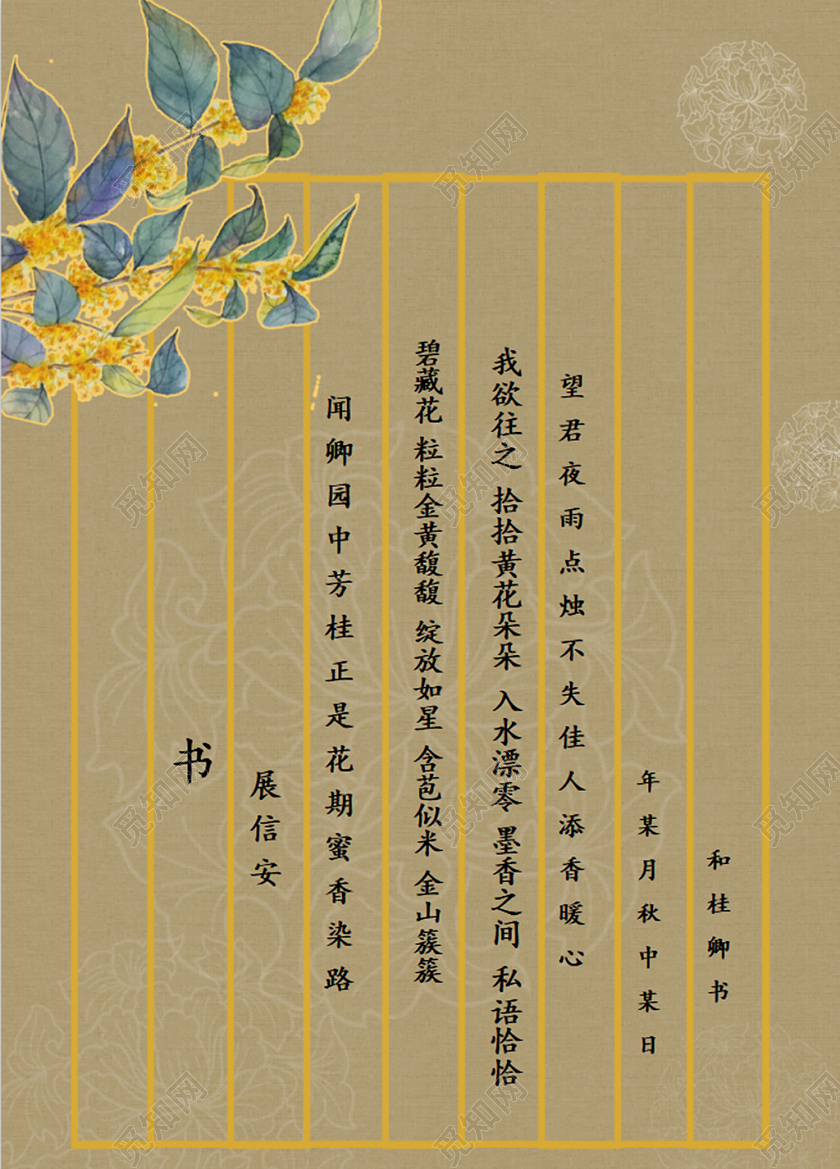 书
展信安
闻卿园中芳桂正是花期蜜香染路
碧藏花 粒粒金黄馥馥 绽放如星 含苞似米 金山簇簇
我欲往之 拾拾黄花朵朵 入水漂零 墨香之间 私语恰恰
望君夜雨点烛不失佳人添香暖心
年某月秋中某日
和桂卿书
觅知网